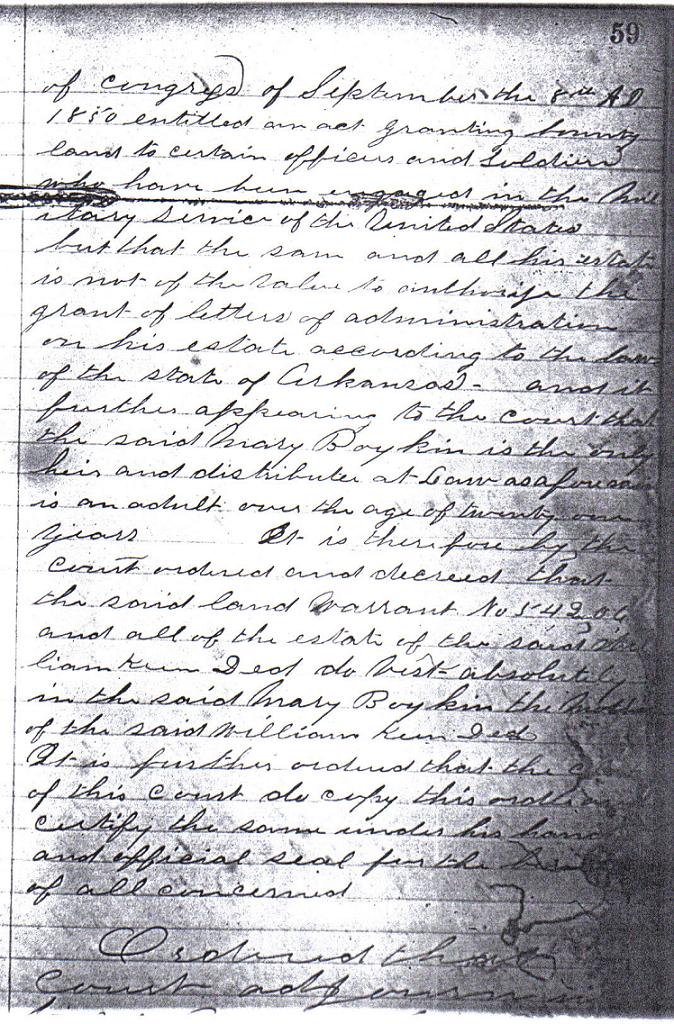 59
of congress of September the 8th AD
1850 entitled an act granting bounty
land to certain officers and Soldiers
who have been engaged in the Mil
itary Service of the United States
but that the same and all his estate
is not of the value to authorise the
grant of letters of administration
on his estate according to the law
of the state of Arkansas - and it
further appearing to the court that
the said Mary Boykin is the only
heir and distributee at Law as aforesaid
is an adult over the age of twenty one
years It is therefore by the
court ordered and decreed that
the said land Warrant No
and all of the estate of the said Wil
liam Keen Decd do vest absolutely
in the said Mary Boykin the Mother
of the said William Keen Decd
It is further ordered that the
of this court do copy this order
certify the same under his hand
and official seal for the
of all concerned
Ordered that
court adjourn